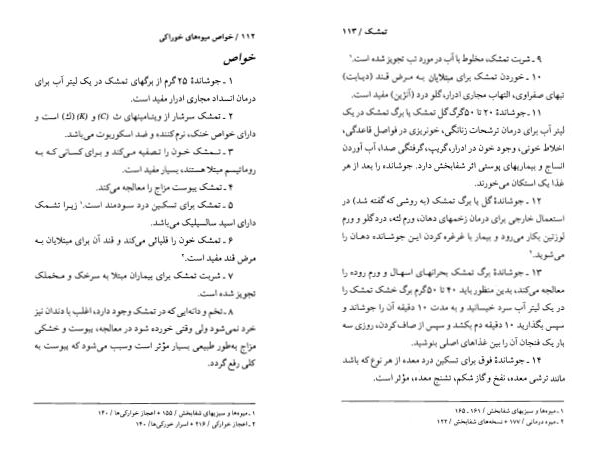 ۱۱۲ / خواص میوه‌های خوراکی
خواص
۱ ـ جوشاندهٔ ۲۵ گرم از برگهای تمشک در یک لیتر آب برای
درمان انسداد مجاری ادرار مفید است.
۲ ـ تمشک سرشار از ویتامینهای ث (C) و (K) (ک) است و
دارای خواص خنک، نرم‌کننده و ضد اسکوربوت می‌باشد.
۳ ـ تمشک خون را تصفیه می‌کند و برای کسانی که به
روماتیسم مبتلا هستند، بسیار مفید است.
۴ ـ تمشک یبوست مزاج را معالجه می‌کند.
۵ ـ تمشک برای تسکین درد سودمند است.۱ زیرا تشمک
دارای اسید سالسیلیک می‌باشد.
۶ ـ تمشک خون را قلیائی می‌کند و قند آن برای مبتلایان به
مرض قند مفید است.۲
۷ ـ شربت تمشک برای بیماران مبتلا به سرخک و مخملک
تجویز شده است.
۸ ـ تخم و دانه‌ایی که در تمشک وجود دارد، اغلب با دندان نیز
خرد نمی‌شود ولی وقتی خورده شود در معالجه، یبوست و خشکی
مزاج به‌طور طبیعی بسیار مؤثر است وسبب می‌شود که یبوست به
کلی رفع گردد.
۱ ـ میوه‌ها و سبزیهای شفابخش / ۱۵۵ + اعجاز خوراکی‌ها / ۱۴۰
۲ ـ اعجاز خوراکی / ۲۱۶ + اسرار خورکی‌ها / ۱۴۰
تمشک / ۱۱۳
۹ ـ شربت تمشک، مخلوط با آب در مورد تب تجویز شده است.۱
۱۰ ـ خوردن تمشک برای مبتلایان به مرض قند (دیابت)
تبهای صفراوی، التهاب مجاری ادرار، گلو درد (آنژین) مفید است.
۱۱ ـ جوشاندهٔ ۲۰ تا ۵۰گرگ گل تمشک یا برگ تمشک در یک
لیتر آب برای درمان ترشحات زنانگی، خونریزی در فواصل قاعدگی،
اخلاط خونی، وجود خون در ادرار، گریپ، گرفتگی صدا، آب آوردن
انساج و بیماریهای پوستی اثر شفابخش دارد. جوشانده را بعد از هر
غذا یک استکان می‌خورند.
۱۲ ـ جوشاندهٔ گل یا برگ تمشک (به روشی که گفته شد) در
استعمال خارجی برای درمان زخمهای دهان، ورم لثه، دردگلو و ورم
لوزتین بکار می‌رود و بیمار با غرغره کردن این جوشانده دهان را
می‌شوید.۲
۱۳ ـ جوشاندهٔ برگ تمشک بحرانهای اسهال و ورم روده را
معالجه می‌کند، بدین منظور باید ۴۰ تا ۵۰ گرم برگ خشک تمشک را
در یک لیتر آب سرد خیسانید و به مدت ۱۰ دقیقه آن را جوشاند و
سپس بگذارید ۱۰ دقیقه دم بکشد و سپس از صاف کردن، روزی سه
بار یک فنجان آن را بین غذاهای اصلی بنوشید.
۱۴ ـ جوشاندهٔ فوق برای تسکین درد معده از هر نوع که باشد
مانند ترشی معده، نفخ و گاز شکم، تشنج معده، مؤثر است.
۱ ـ میوه‌ها و سبزیهای شفابخش / ۱۶۱ ـ ۱۶۵
۲ ـ میوه درمانی / ۱۷۷ + نسخه‌های شفابخش / ۱۲۲